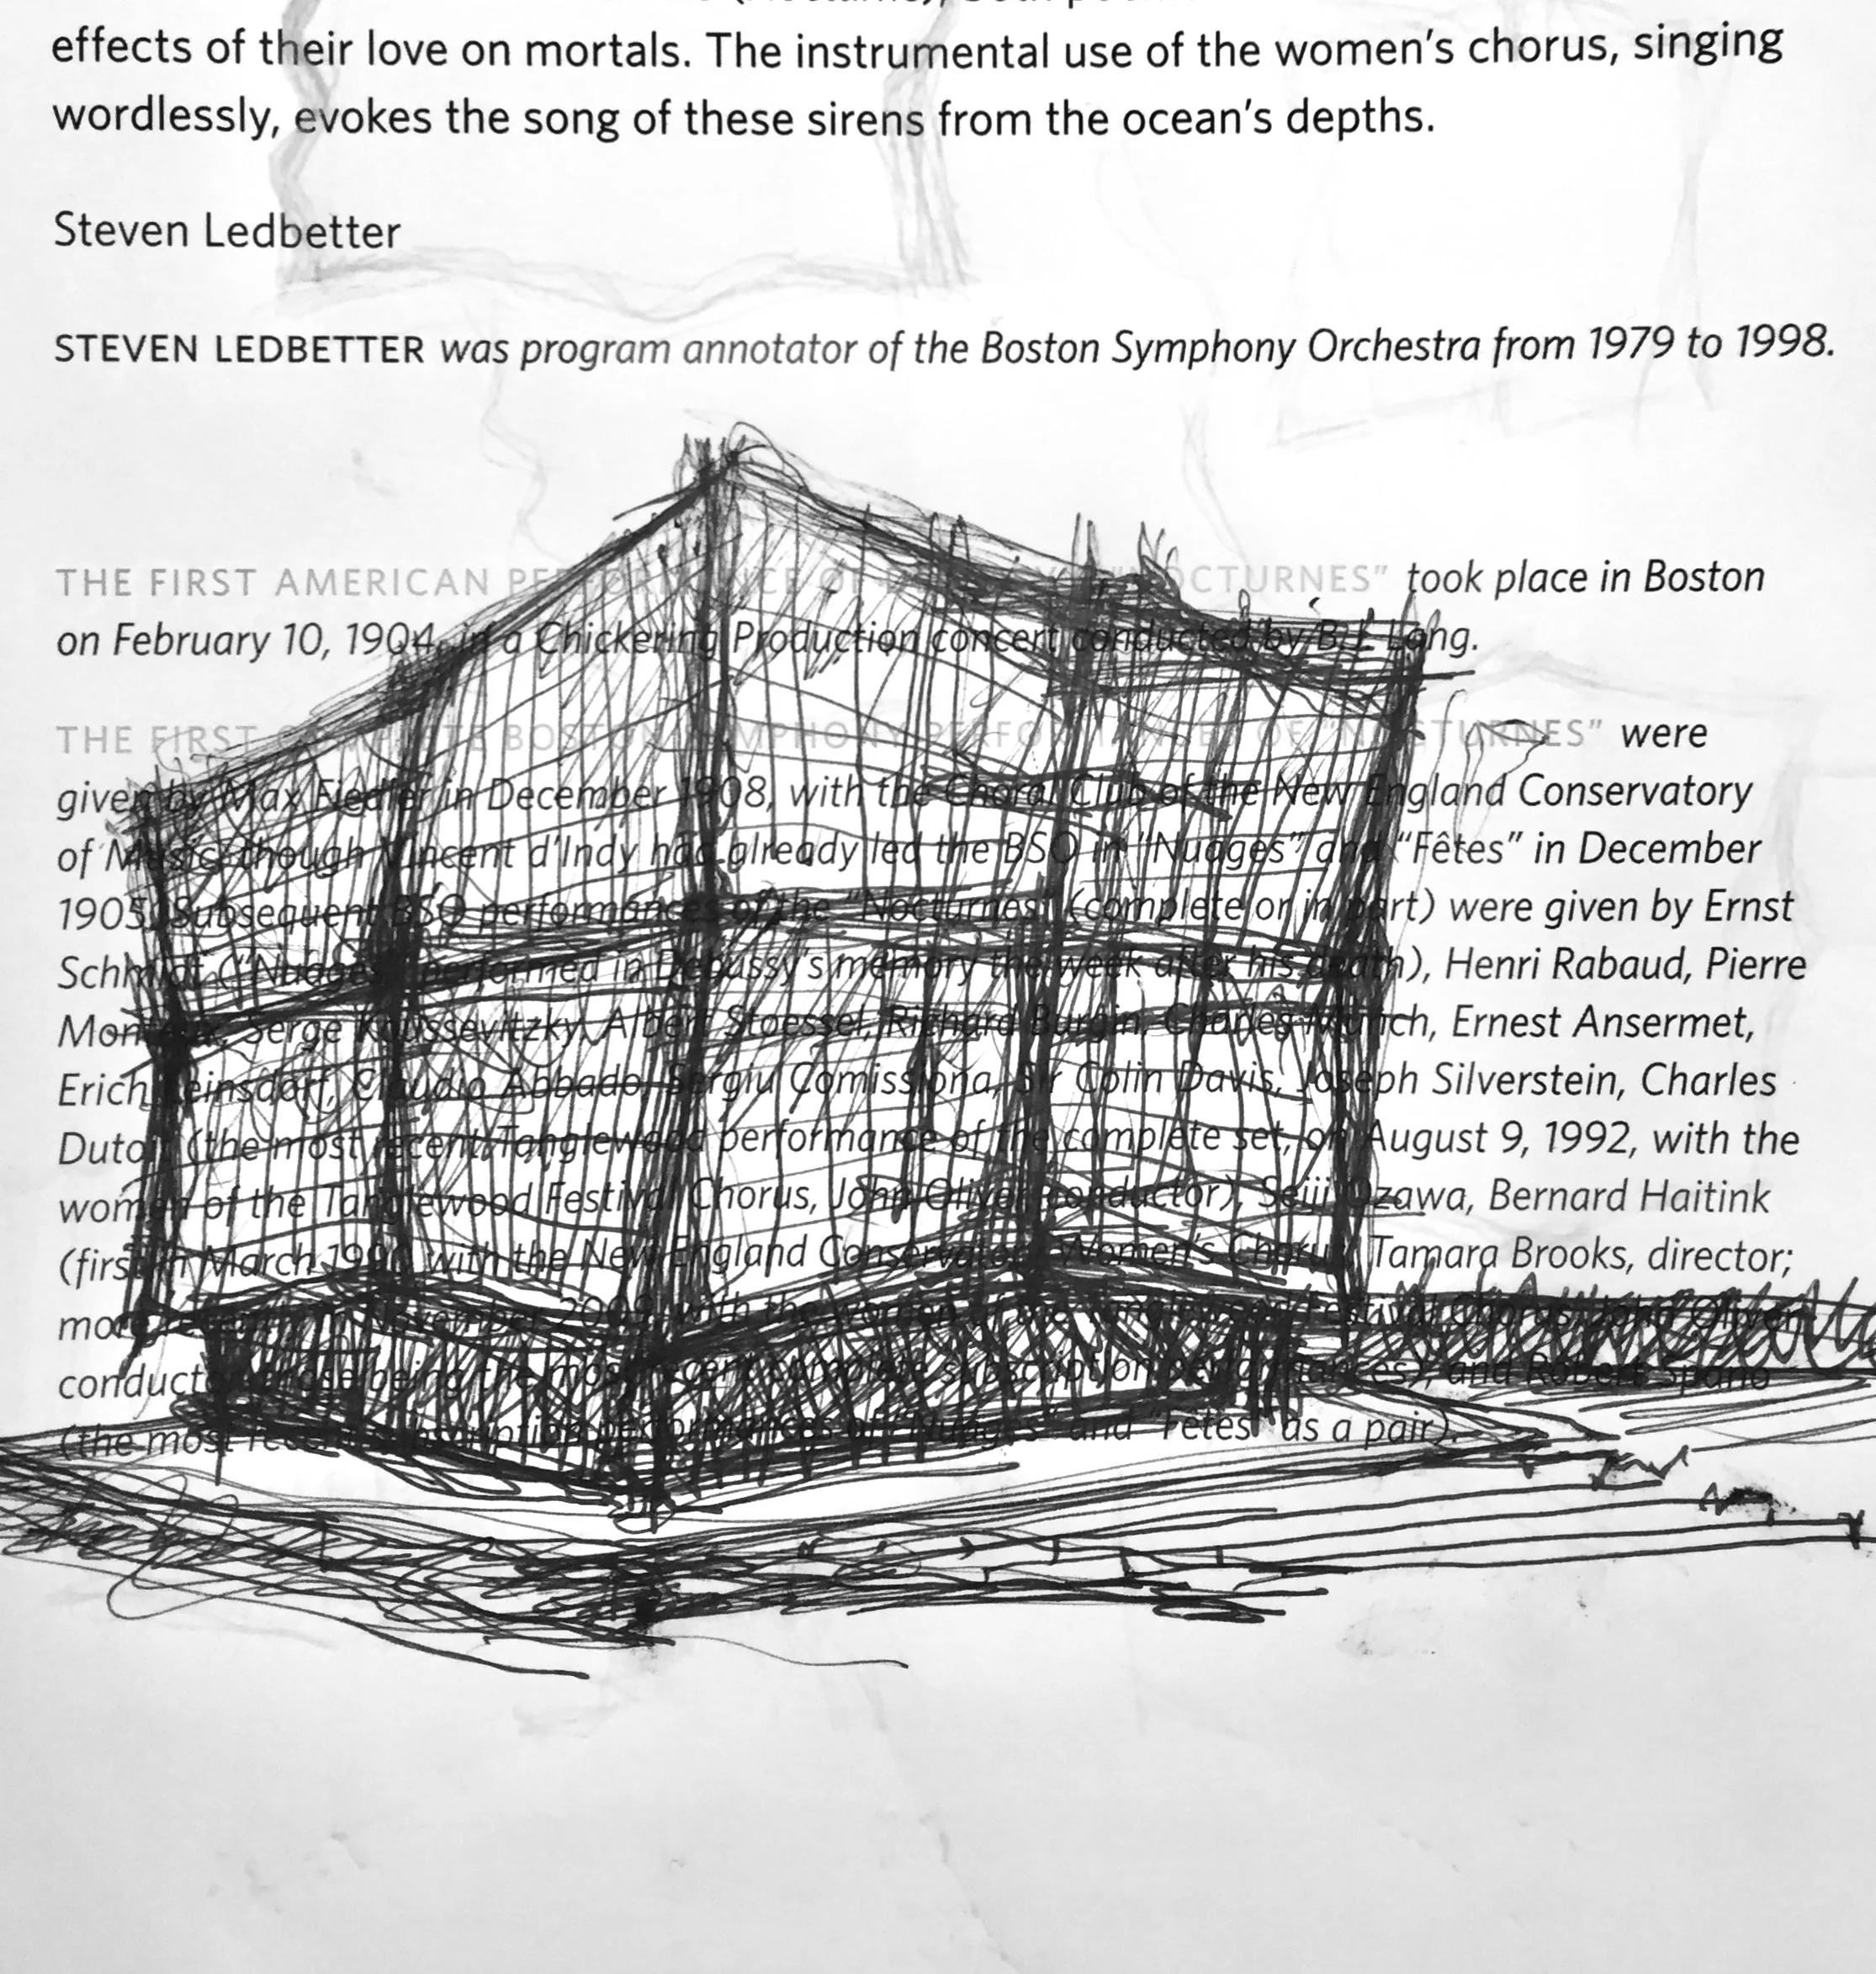 effects of their love on mortals. The instrumental use of the women's chorus, singing
wordlessly, evokes the song of these sirens from the ocean's depths.
Steven Ledbetter
STEVEN LEDBETTER was program annotator of the Boston Symphony Orchestra from 1979 to 1998.
THE FIRST AMERICAN PERFORMANCE OF "NOCTURNES" took place in Boston
on February 10, 1904, in a Chickering Production concert conducted by B.J. Lang.
THE FIRST COMPLETE BOSTON SYMPHONY PERFORMANCES OF "NOCTURNES" were
given by Max Fiedler in December 1908, with the Choral Club of the New England Conservatory
of Music, though Vincent d'Indy had already led the BSO in "Nuages" and "Fêtes" in December
1905. Subsequent BSO performances of the "Nocturnes" (complete or in part) were given by Ernst
Schmidt ("Nuages" performed in Debussy's memory the week after his death), Henri Rabaud, Pierre
Monteux, Serge Koussevitzky, Albert Stoessel, Richard Burgin, Charles Munch, Ernest Ansermet,
Erich Leinsdorf, Claudio Abbado, Sergiu Comissiona, Sir Colin Davis, Joseph Silverstein, Charles
Dutoit (the most recent Tanglewood performance of the complete set, on August 9, 1992, with the
women of the Tanglewood Festival Chorus, John Oliver, conductor), Seiji Ozawa, Bernard Haitink
(first in March 1990 with the New England Conservatory Women's Chorus, Tamara Brooks, director;
more recently in November with the women of the Tanglewood Festival Chorus, John Oliver,
conductor, those being the most recent complete subscription performances), and Robert Spano
(the most recent subscription performances of "Nuages" and "Fêtes" as a pair).